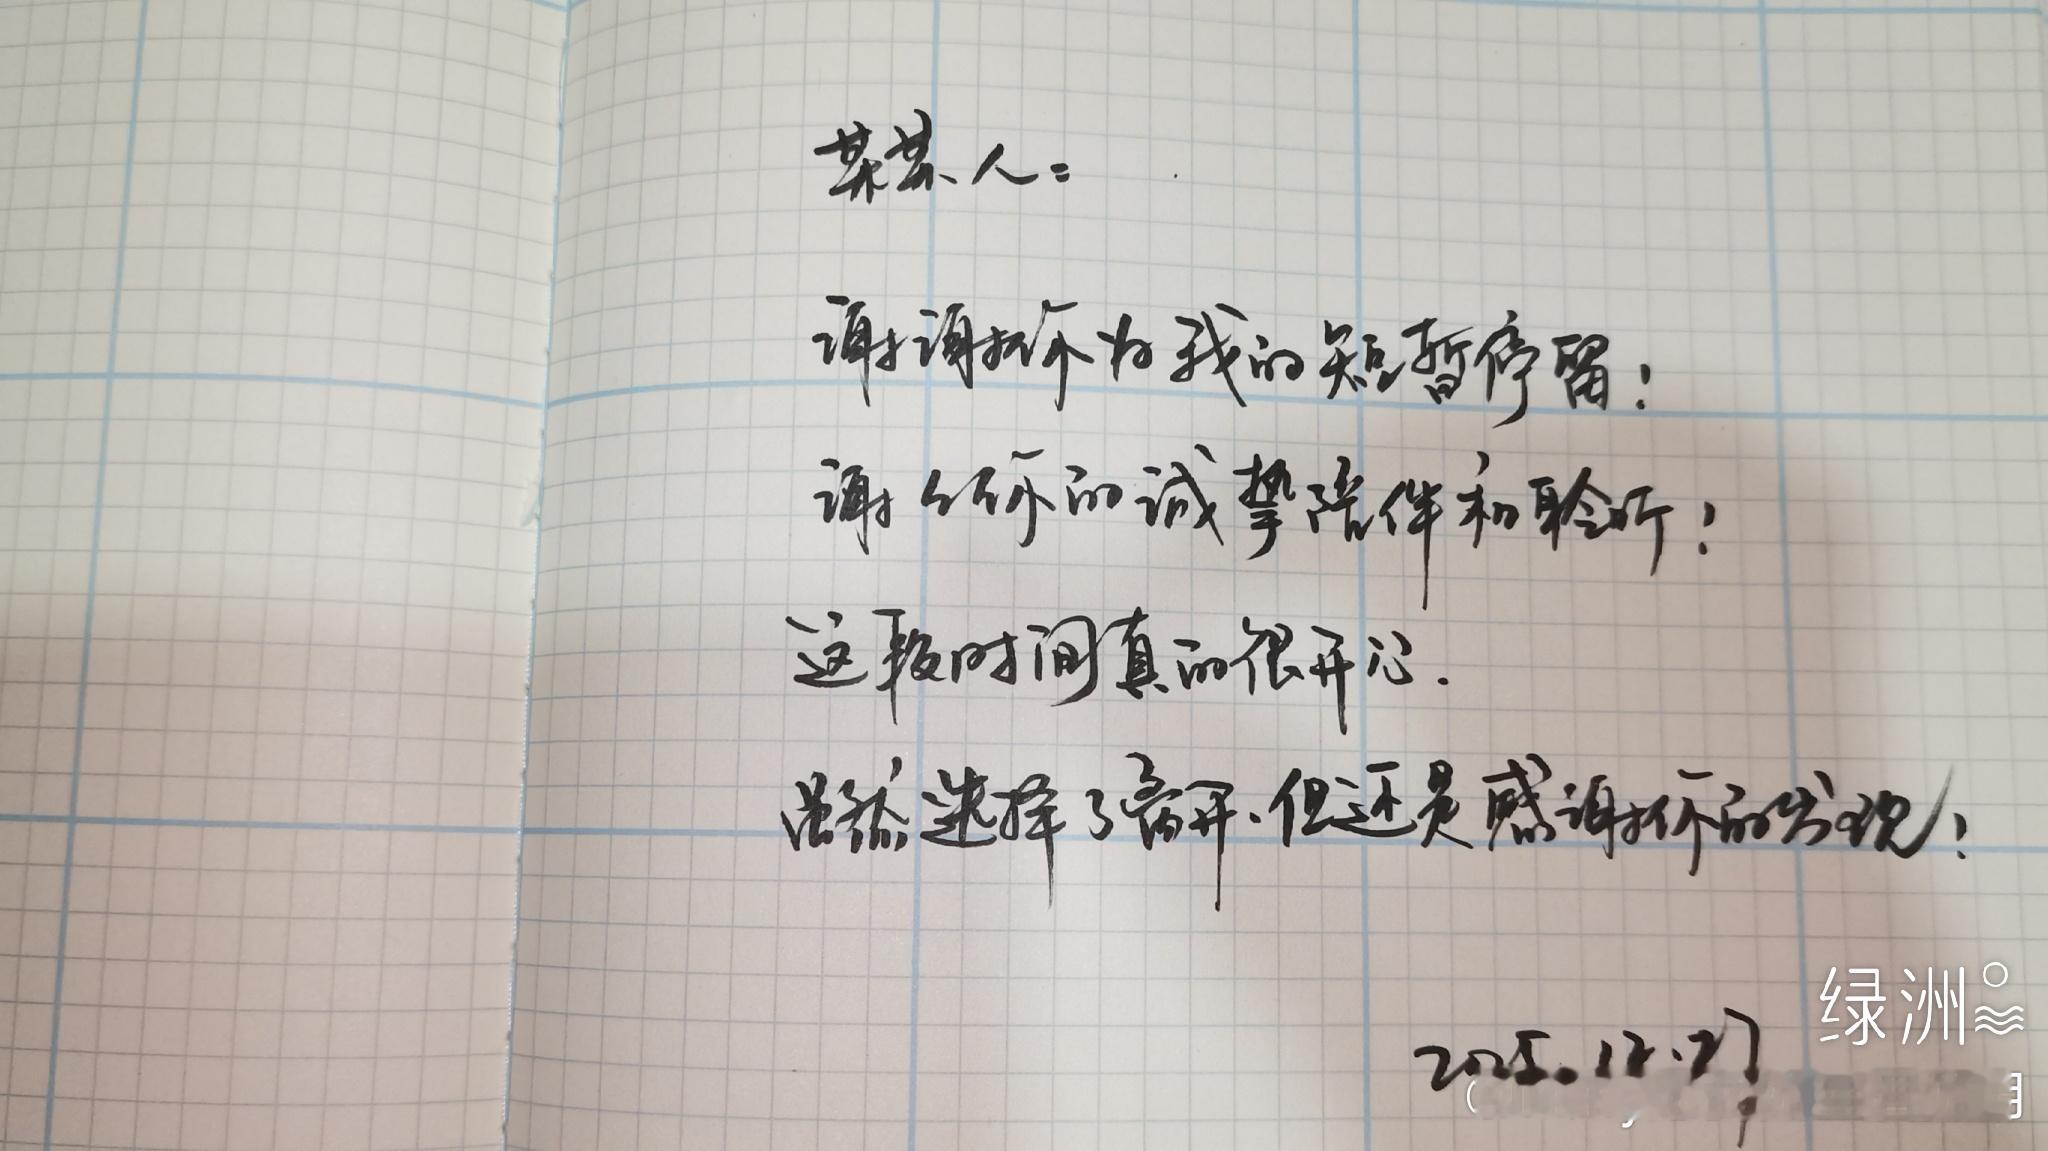 某某人:
谢谢你为我的短暂停留!
谢谢你的诚挚陪伴和聆听!
这段时间真的很开心.
虽然选择了离开.但还是感谢你的出现!
绿洲
2025.12.27